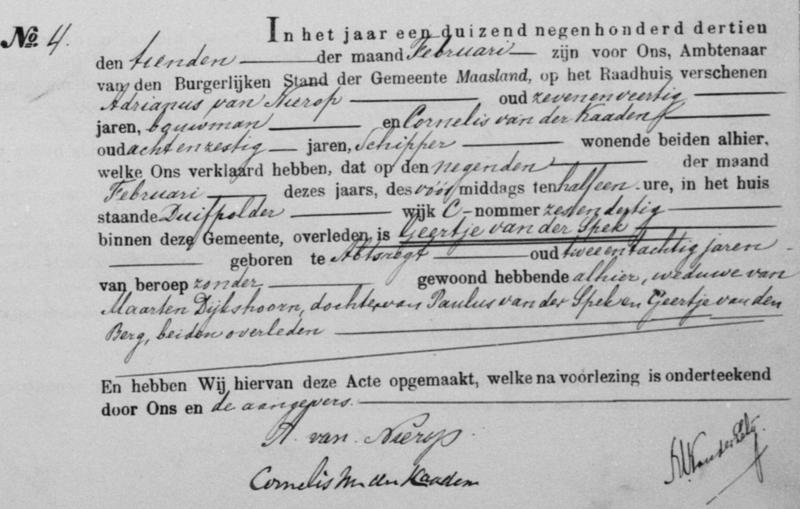 No. 4.
In het jaar een duizend negenhonderd dertien
den tienden der maand Februari zijn voor Ons, Ambtenaar
van den Burgerlijken Stand der Gemeente Maasland, op het Raadhuis verschenen
Adrianus van Nierop oud zevenenveertig
jaren, bouwman en Cornelis van der Kaaden
oud achtenzestig jaren, Schipper wonende beiden alhier,
welke Ons verklaard hebben, dat op den negenden der maand
Februari dezes jaars, des vóórmiddags ten half een ure, in het huis
staande Duifpolder wijk C nommer zevendertig
binnen deze Gemeente, overleden is Geertje van der Spek
geboren te Abtsregt oud tweeentachtig jaren
van beroep zonder, gewoond hebbende alhier, weduwe van
Maarten Dijkshoorn, dochter van Paulus van der Spek en Geertje van den
Berg, beiden overleden
En hebben Wij hiervan deze Acte opgemaakt, welke na voorlezing is onderteekend
door Ons en de aangevers.
A. van Nierop.
Cornelis van der Kaaden